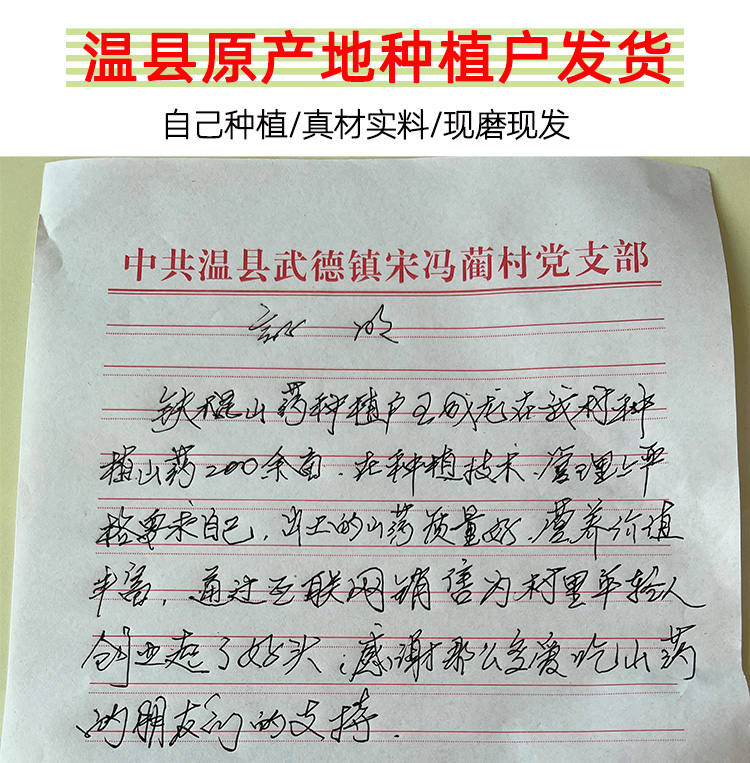 温县原产地种植户发货
自己种植/真材实料/现磨现发
中共温县武德镇宋冯蔺村党支部
证 明
铁棍山药种植户王成龙在我村种
植山药200余亩.在种植技术.管理上严
格要求自己,出土的山药质量好.营养价值
丰富,通过互联网销售为村里年轻人
创业起了好头;感谢那么多爱吃山药
的朋友们的支持.